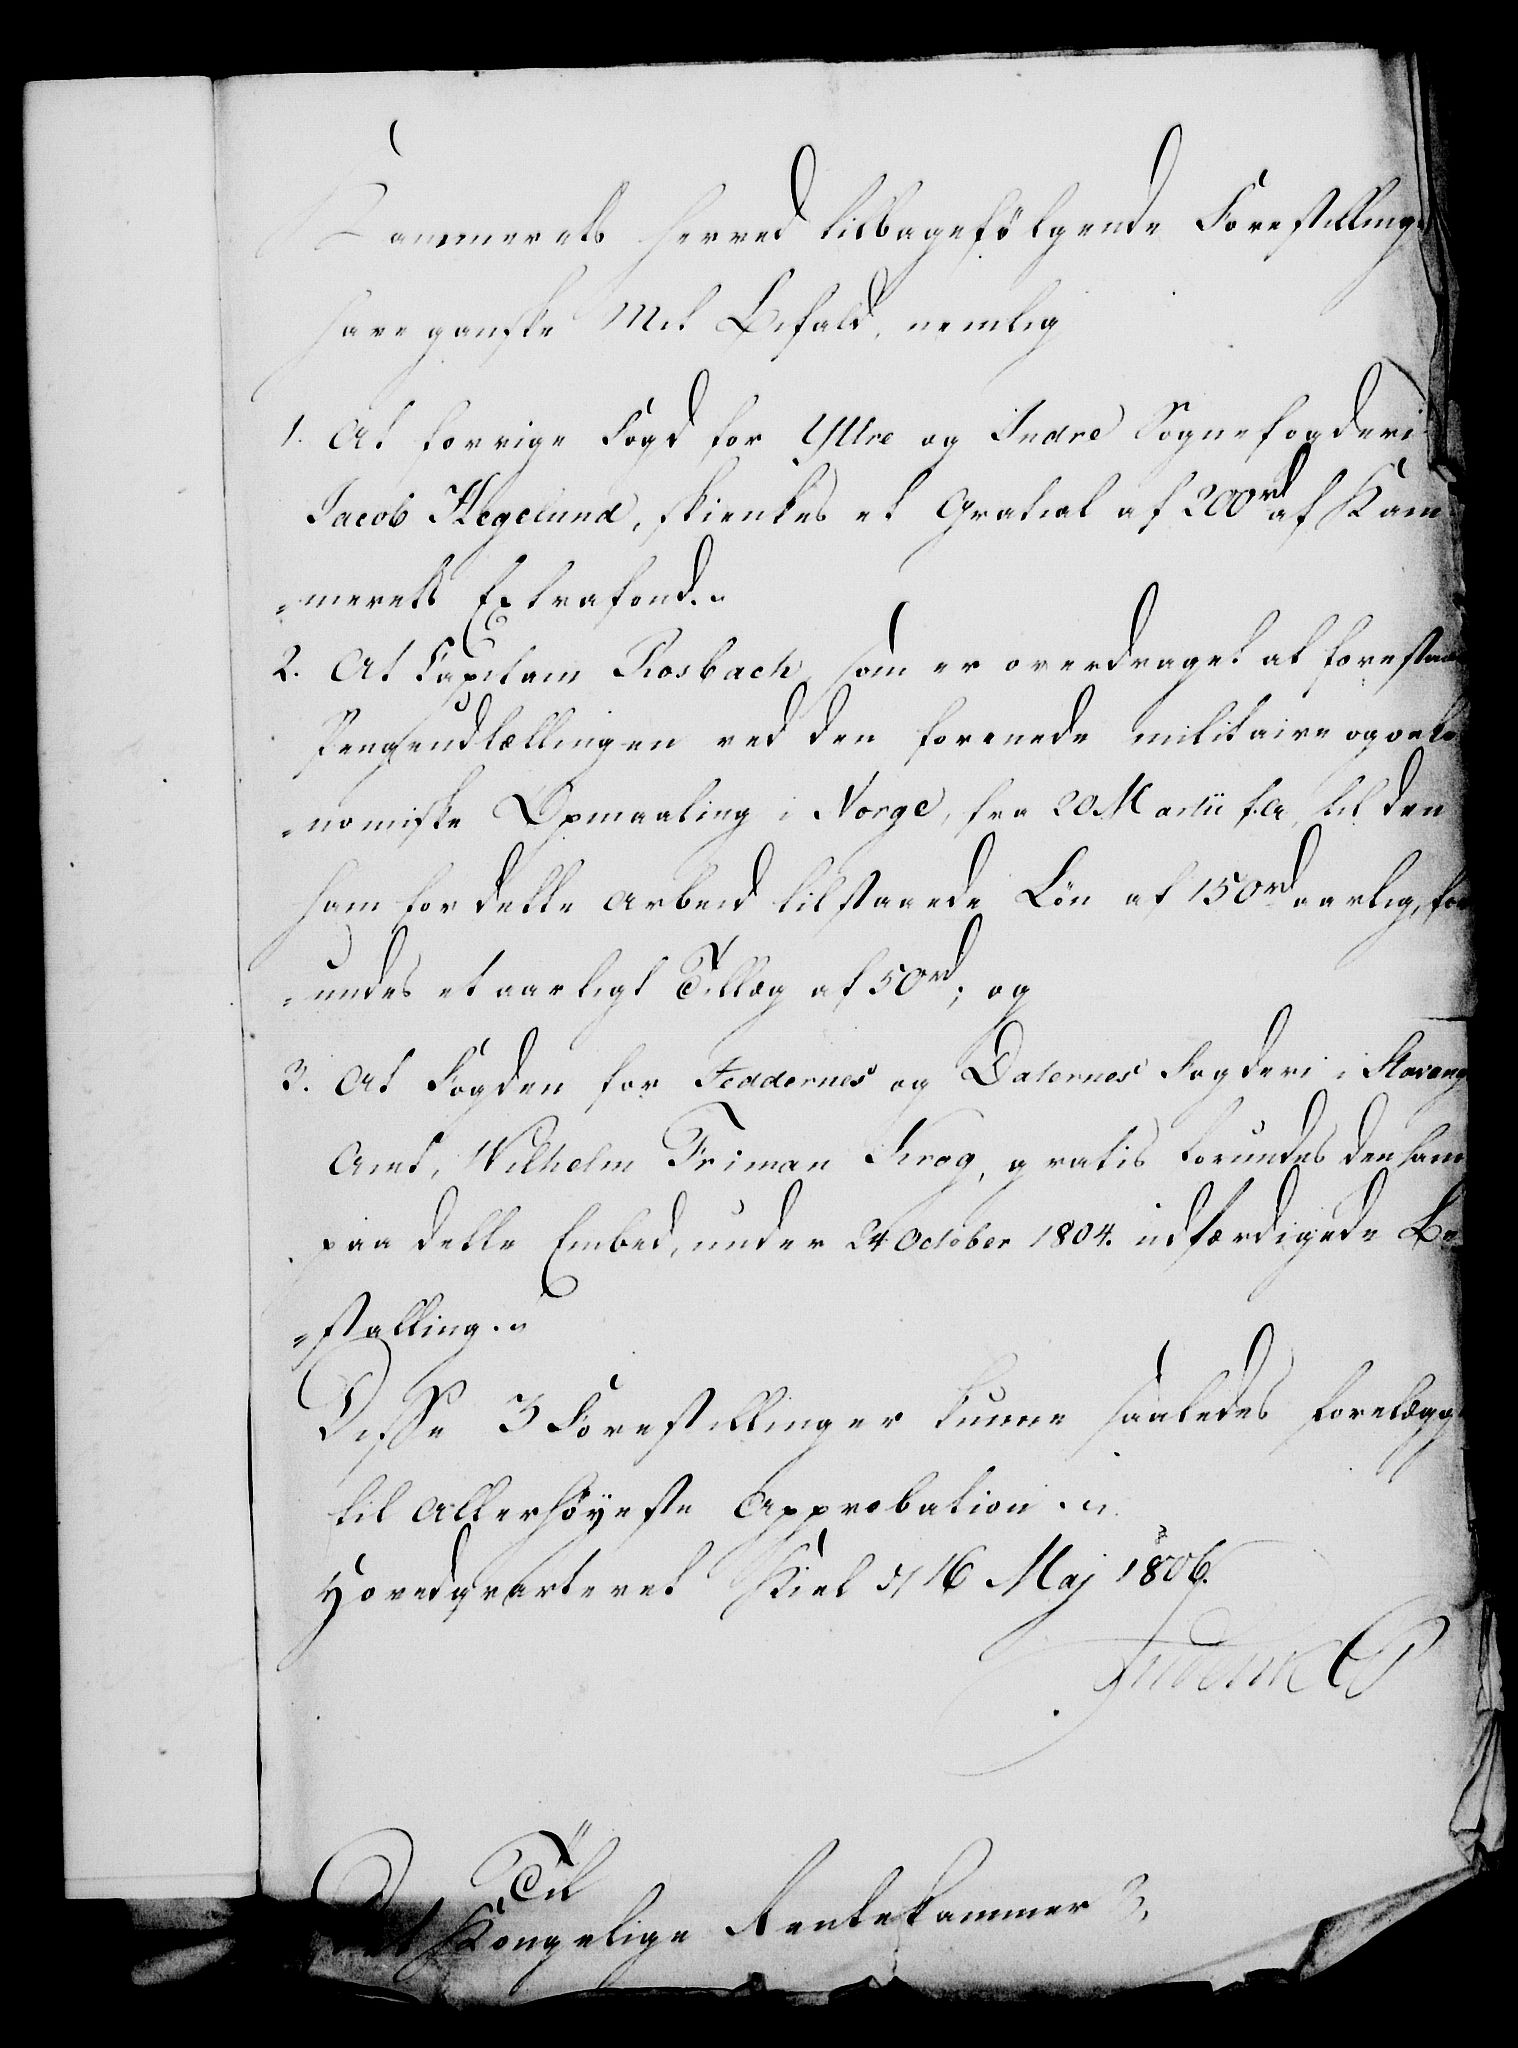 Kammerets herved tilbagefölgende Forestillinger
have ganske Mit Bifald, nemlig
1. At forrige Fogd for Yttre og Indre Sognefogderi
Jacob Hegelund, skienkes et Gratial af 200rd af Kam
=merets Extrafond.
2. At Capitain Rosbach, som er overdraget at forestaae
Pengeudtællingen ved den forenede militaire og oeko
=nomiske Opmaaling i Norge, fra 20 Martii f.A. til den
ham for dette Arbeid tilstaaede Lön af 150rd aarlig, for
=undes et aarligt Tillæg af 50rd; og
3. At Fogden for Jeddernes og Dalernes Fogderi i Stavang
Amt, Wilhelm Friman Krog, gratis forundes den ham
paa dette Embed, under 24 October 1804. udfærdigede Be
=stalling.
Disse 3 Forestillinger kunne saaledes forelægg
til Allerhöyeste Approbation.
Hovedqvarteret Kiel d 16 Maj 1806.
Friderik CP
Til
Det Kongelige Rentekammer